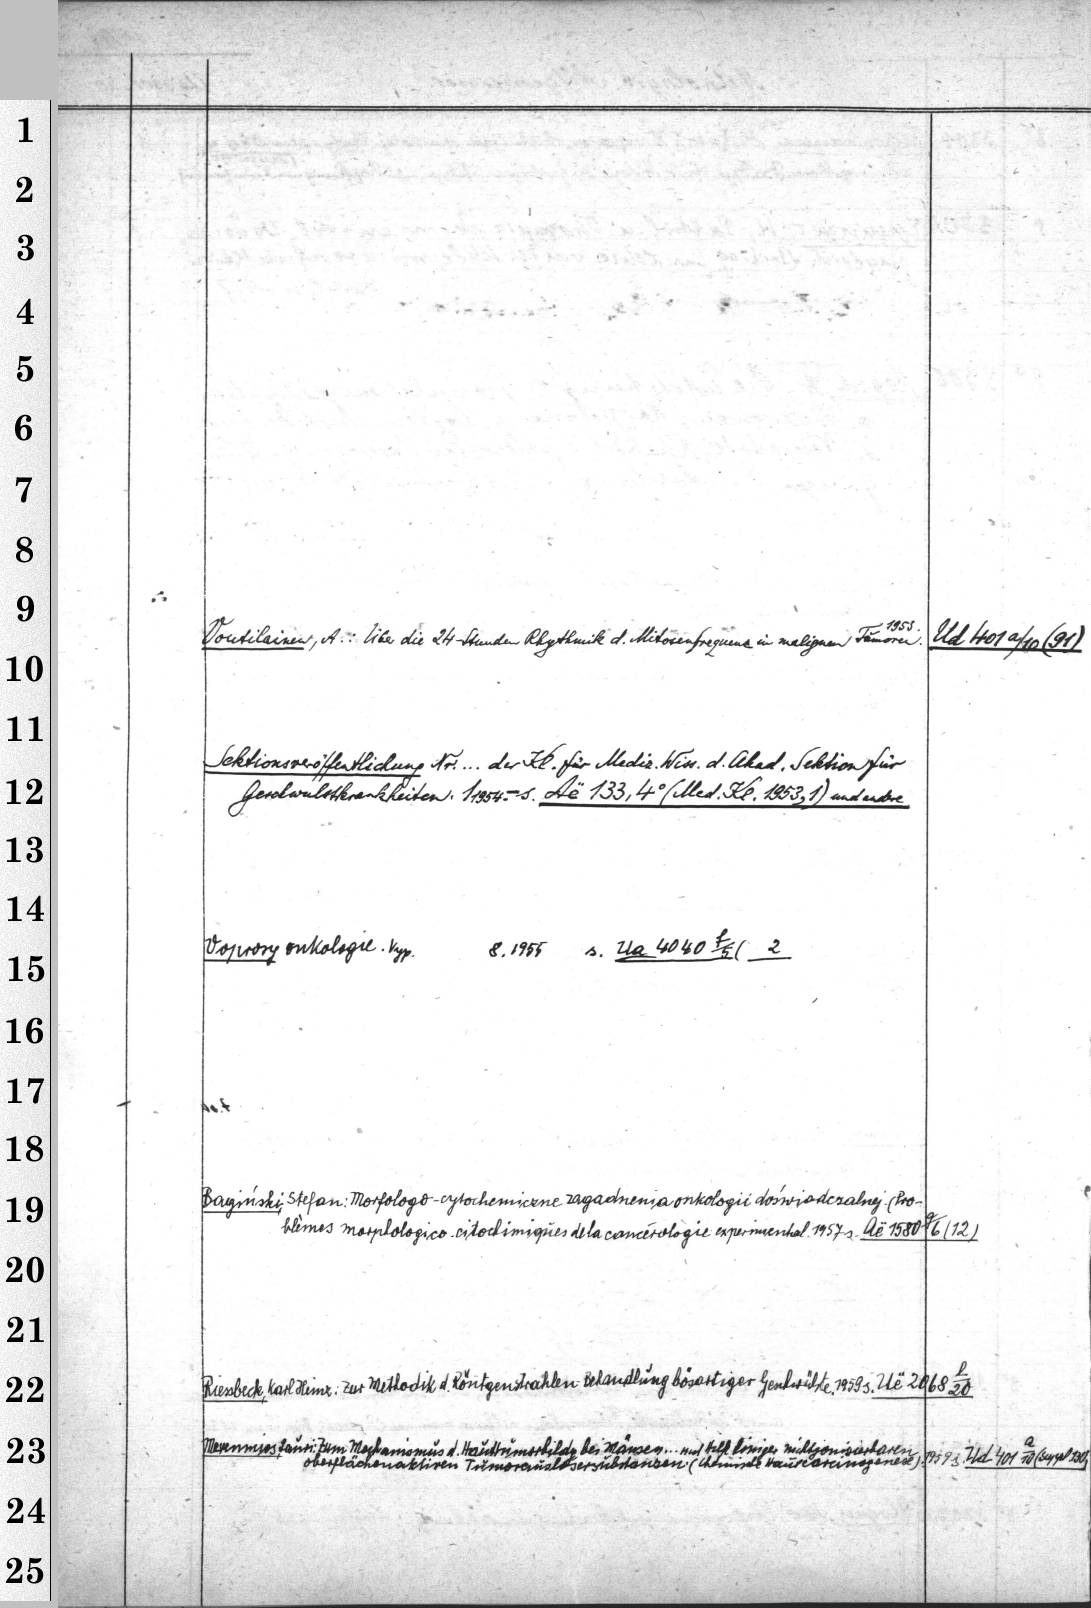 1
2
3
4
5
6
7
8
9
Voutilainen, A.: Über die 24-Stunden Rhythmik d. Mitosenfrequenz in malignen Tumoren. 1953. Ud 401 a/10 (91)
10
11
Sektionsveröffentlichung Nr. ... der Kl. für Mediz. Wiss. d. Akad. Sektion für
12
Geschwulstkrankheiten. 1 1954 - s. Aë 133, 4° (Med. Kl. 1953,1) und andre
13
14
Voprosy onkologie. Vyp. 8. 1955 s. Ua 4040 f/5 ( 2
15
16
17
18
19
Bagiński, Stefan: Morfologo-cytochemiczne zagadnienia onkologii doświadczalnej. (Pro-
blèmes morphologico-citochimiques de la cancérologie experimental. 1957 s. Aë 1580 a/6 (12)
20
21
22
Riessbeck, Karl Heinz: Zur Methodik d. Röntgenstrahlen-Behandlung bösartiger Geschwülste. 1959 s. Uë 2068 f/20
23
Lauri: Zum Mechanismus d. Hauttumorbildg bei Mäusen ... einiger nichtjonisierbaren
oberflächenaktiven Tumorauslösersubstanzen. (Chemische Hautcarcinogenese). 1959 s. Ud 401 a/10 (Suppl.
24
25